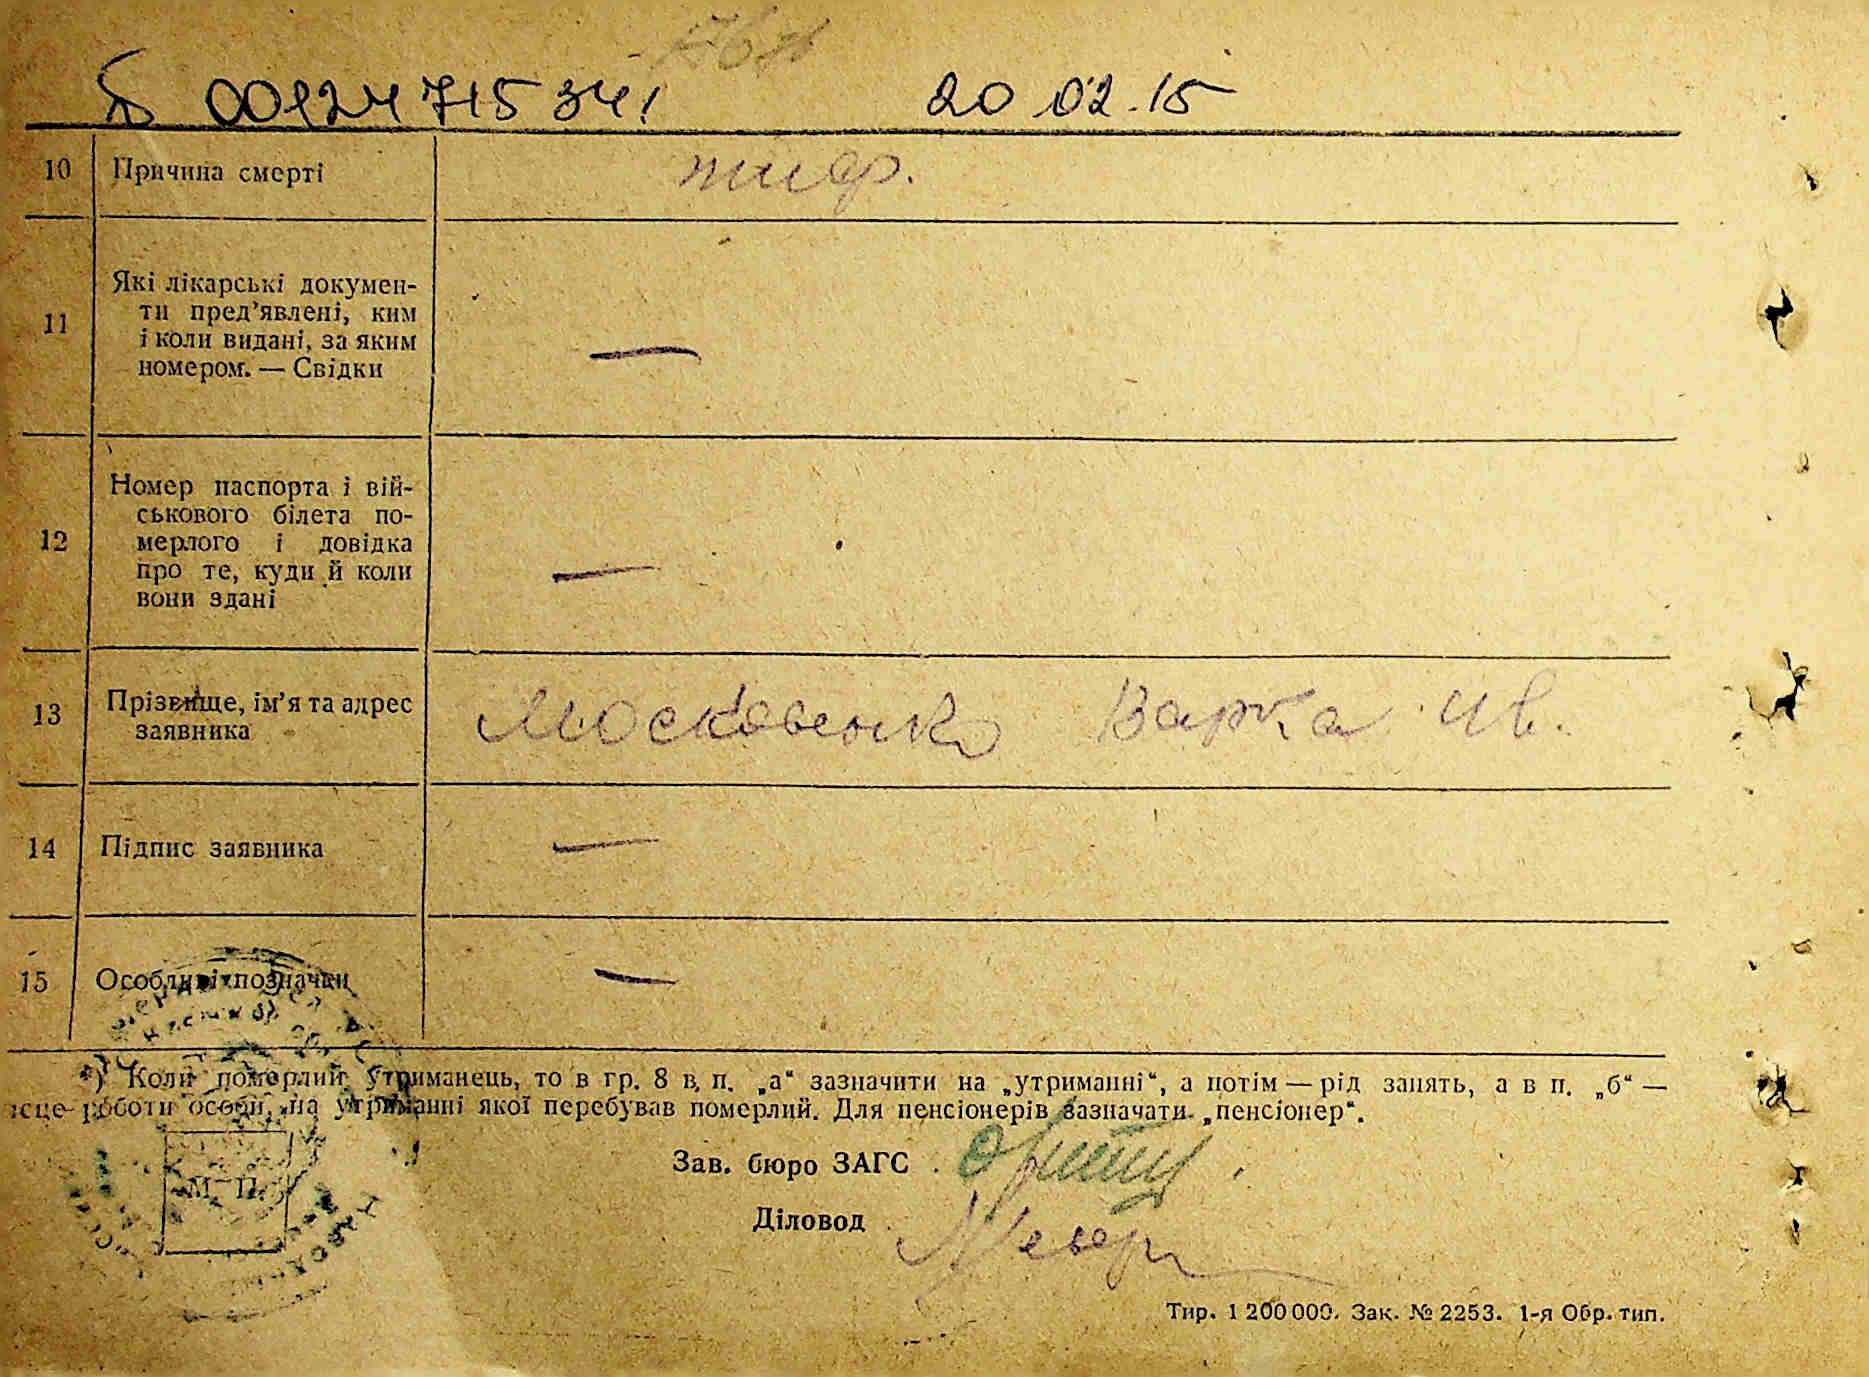 00124715341 20 02.15
10 Причина смерті тиф.
11 Які лікарські докумен-
ти пред’явлені, ким
і коли видані, за яким
номером. — Свідки —
12 Номер паспорта і вій-
ськового білета по-
мерлого і довідка
про те, куди й коли
вони здані —
13 Прізвище, ім’я та адрес
заявника Московенко Варка Ив.
14 Підпис заявника —
15 Особливі позначки —
*) Коли померлий утриманець, то в гр. 8 в. п. „а“ зазначити на „утриманні“, а потім — рід занять, а в п. „б“ —
роботи особи, на утриманні якої перебував померлий. Для пенсіонерів зазначати „пенсіонер“.
Зав. бюро ЗАГС
М. П.
Діловод
Тир. 1 200 000. Зак. № 2253. 1-я Обр. тип.